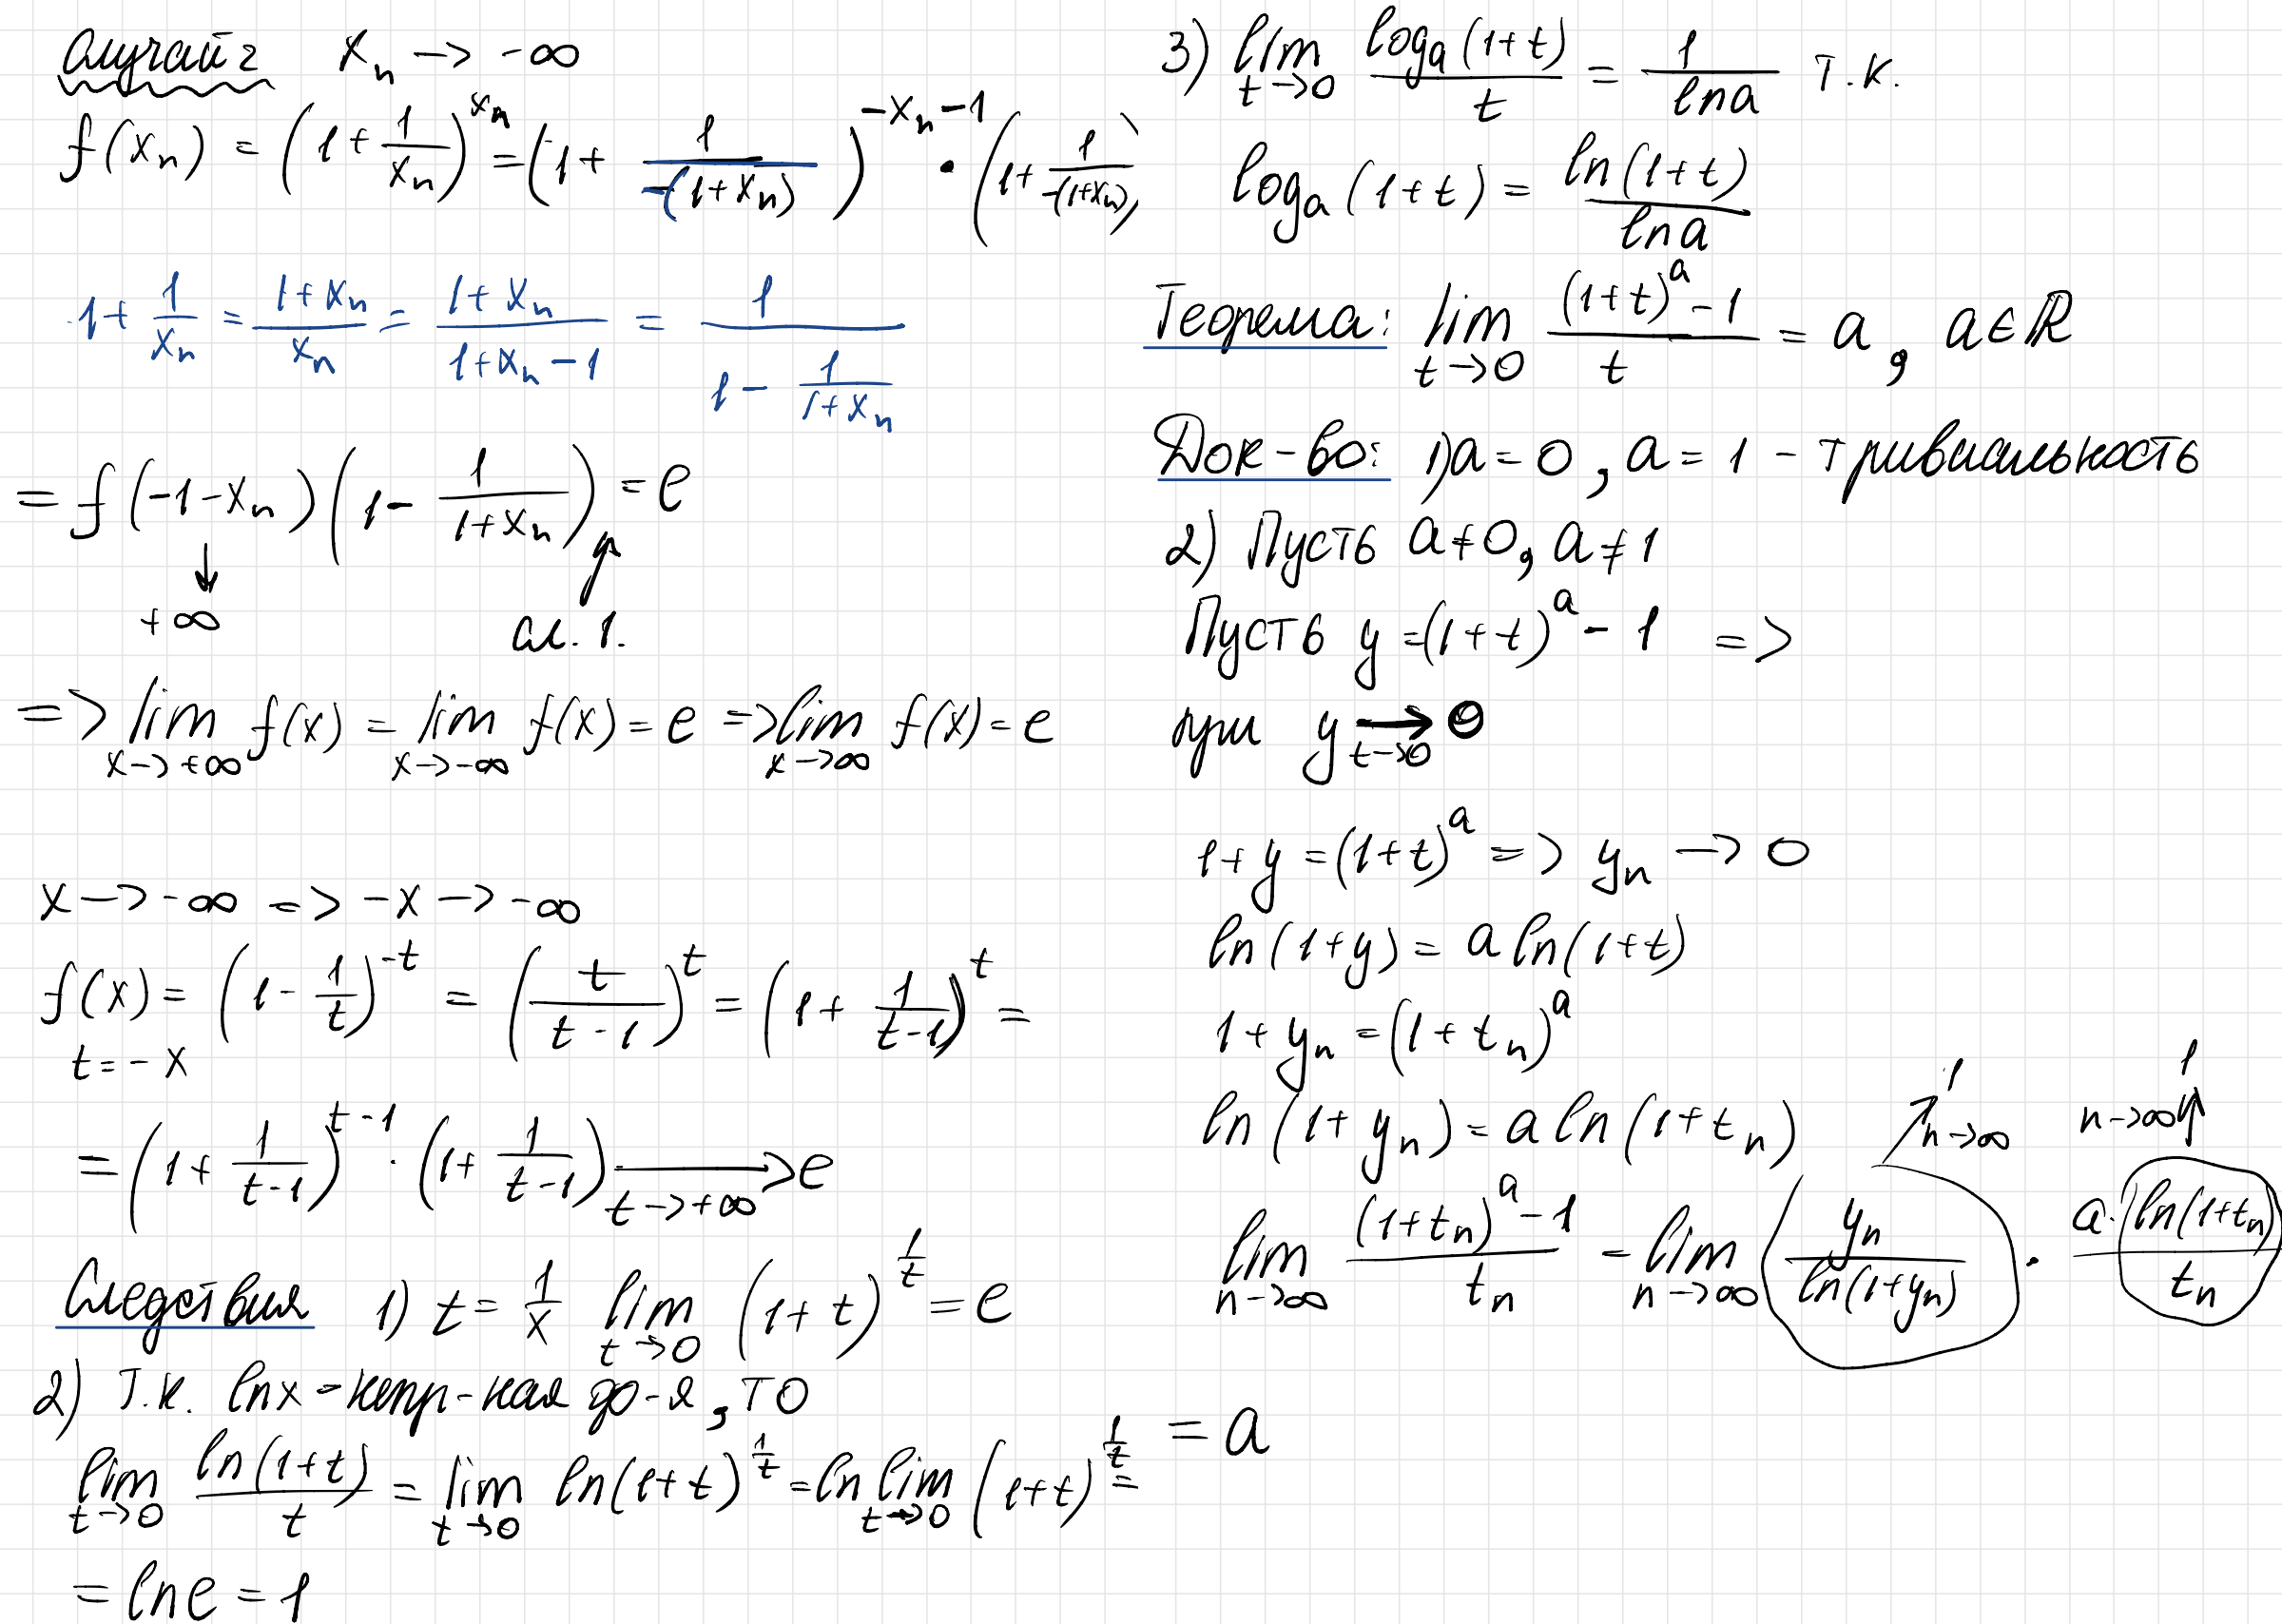 Случай 2 xₙ → -∞
f(xₙ) = (1 + 1/xₙ)^xₙ = (1 + 1/(-(1+xₙ)))^(-xₙ-1) · (1 + 1/(-(1+xₙ)))
1 + 1/xₙ = (1+xₙ)/xₙ = (1+xₙ)/(1+xₙ-1) = 1/(1 - 1/(1+xₙ))
= f(-1-xₙ)(1 - 1/(1+xₙ)) = e
↓
+∞
сл. 1.
=> lim x→+∞ f(x) = lim x→-∞ f(x) = e => lim x→∞ f(x) = e
x → -∞ => -x → -∞
f(x) = (1 - 1/t)^(-t) = (t/(t-1))^t = (1 + 1/(t-1))^t =
t = -x
= (1 + 1/(t-1))^(t-1) · (1 + 1/(t-1)) →(t→+∞) e
Следствия 1) t = 1/x lim t→0 (1+t)^(1/t) = e
2) т.к. lnx - непр-ная ф-я, то
lim t→0 ln(1+t)/t = lim t→0 ln(1+t)^(1/t) = ln lim t→0 (1+t)^(1/t) =
= ln e = 1
3) lim t→0 logₐ(1+t)/t = 1/ln a т.к.
logₐ(1+t) = ln(1+t)/ln a
Теорема: lim t→0 ((1+t)^a - 1)/t = a, a∈ℝ
Док-во: 1) a = 0, a = 1 - тривиальность
2) Пусть a≠0, a≠1
Пусть y = (1+t)^a - 1 =>
при y →(t→0) 0
1+y = (1+t)^a => yₙ → 0
ln(1+y) = a ln(1+t)
1 + yₙ = (1 + tₙ)^a
ln(1+yₙ) = a ln(1+tₙ) ↗ n→∞ 1 n→∞ ↑ 1
lim n→∞ ((1+tₙ)^a - 1)/tₙ = lim n→∞ yₙ/ln(1+yₙ) · a·ln(1+tₙ)/tₙ
= a